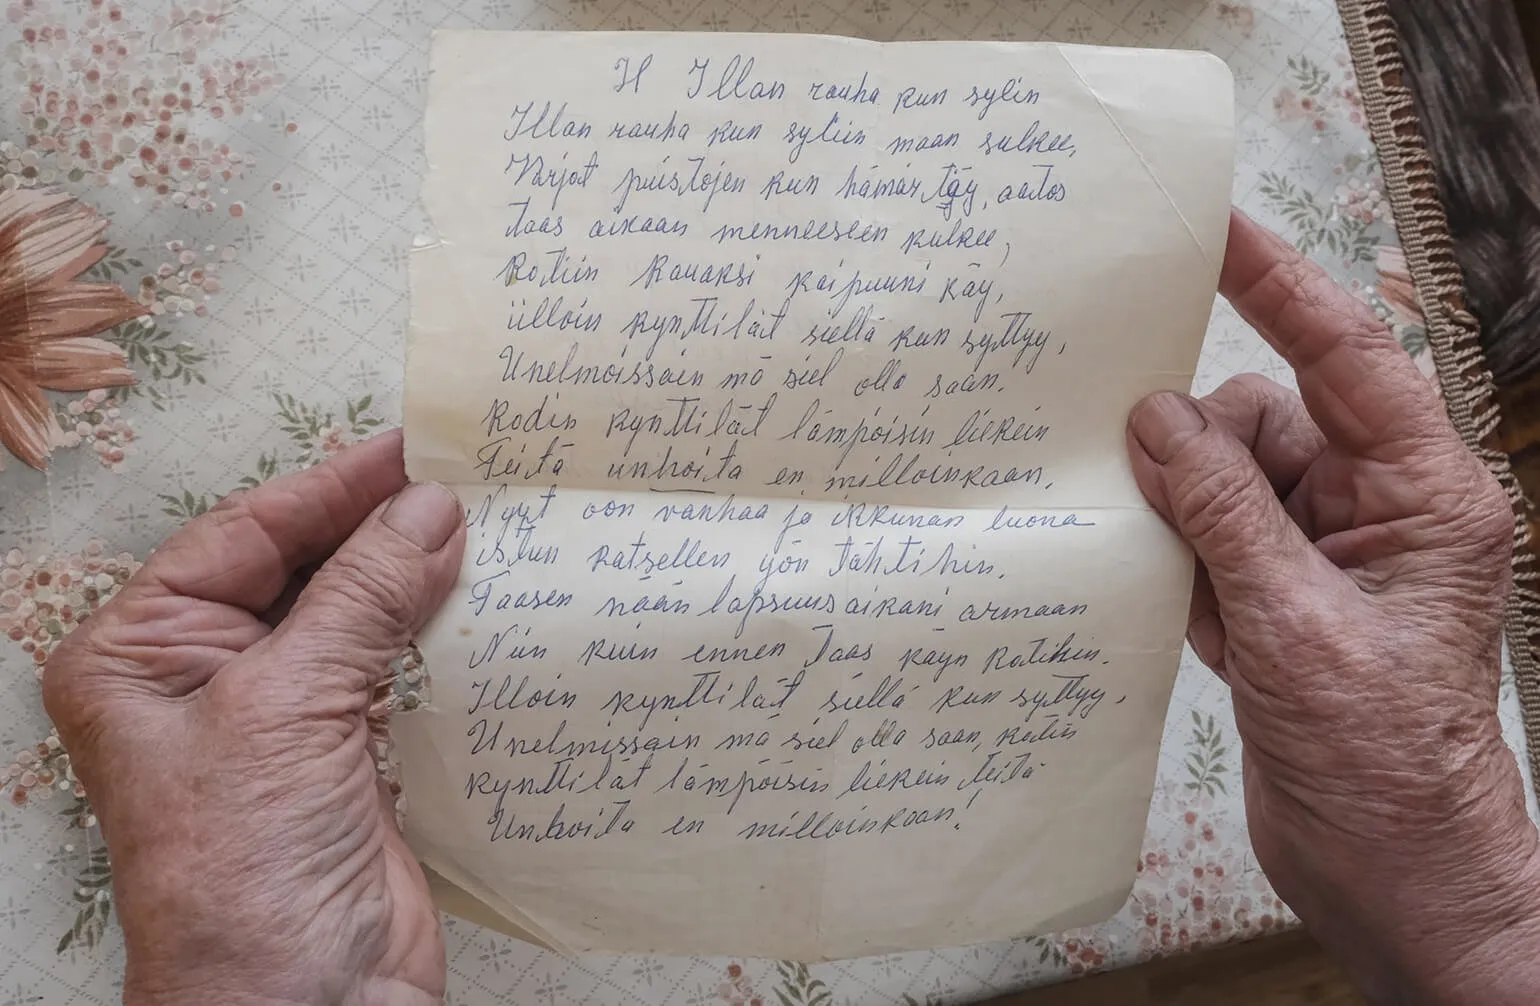 H Illan rauha kun sylin
Illan rauha kun syliin maan sulkee,
Varjot puistojen kun hämärtäy, aatos
taas aikaan menneeseen kulkee,
kotiin kauaksi kaipuuni käy,
illoin kynttilät siellä kun syttyy,
Unelmoissain mä siel olla saan.
kodin kynttilät lämpöisin liekein
Teitä unhoita en milloinkaan.
Nyyt oon vanhaa ja ikkunan luona
istun katsellen yön tähtihin.
Taasen nään lapsuusaikani armaan
Niin kuin ennen taas käyn kotihin.
Illoin kynttilät siellä kun syttyy,
Unelmissain mä siel olla saan, kotin
kynttilät lämpöisin liekein teitä
Unhoita en milloinkaan!